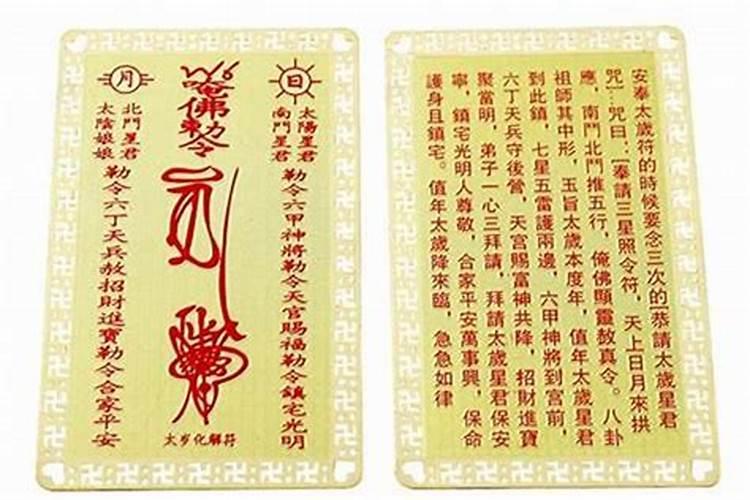 日
太陽星君
南鬥星君
勒令六甲神將勒令天官賜福勒令鎮宅光明
唵佛勅令
太歲化解符
月
北鬥星君
太陰娘娘
勒令六丁天兵赦招財進寶勒令合家平安
安奉太歲符的時候要念三次的[恭請太歲星君
咒]…咒曰：[奉請三星照令符，天上日月來拱
應，南鬥北鬥推五行，俺佛顯靈敖真令。八卦
祖師其中形，玉旨太歲本度年，值年太歲星君
到此鎮，七星五雷護兩邊，六甲神將到宮前，
六丁天兵守後營，天宮賜富神共降，招財進寶
聚當明，弟子一心三拜請，拜請太歲星君保安
寧，鎮宅光明人尊敬，合家平安萬事興，保命
護身且鎮宅。值年太歲降來臨，急急如律